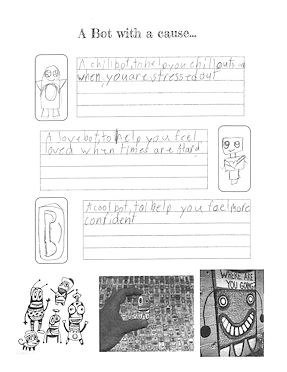 A Bot with a cause...
A chill bot, to help you chill outs
when you are stressed out
A love bot, to help you feel
loved when times are Hard
A cool bot, to help you feel more
confident
WHERE ARE
YOU GOING